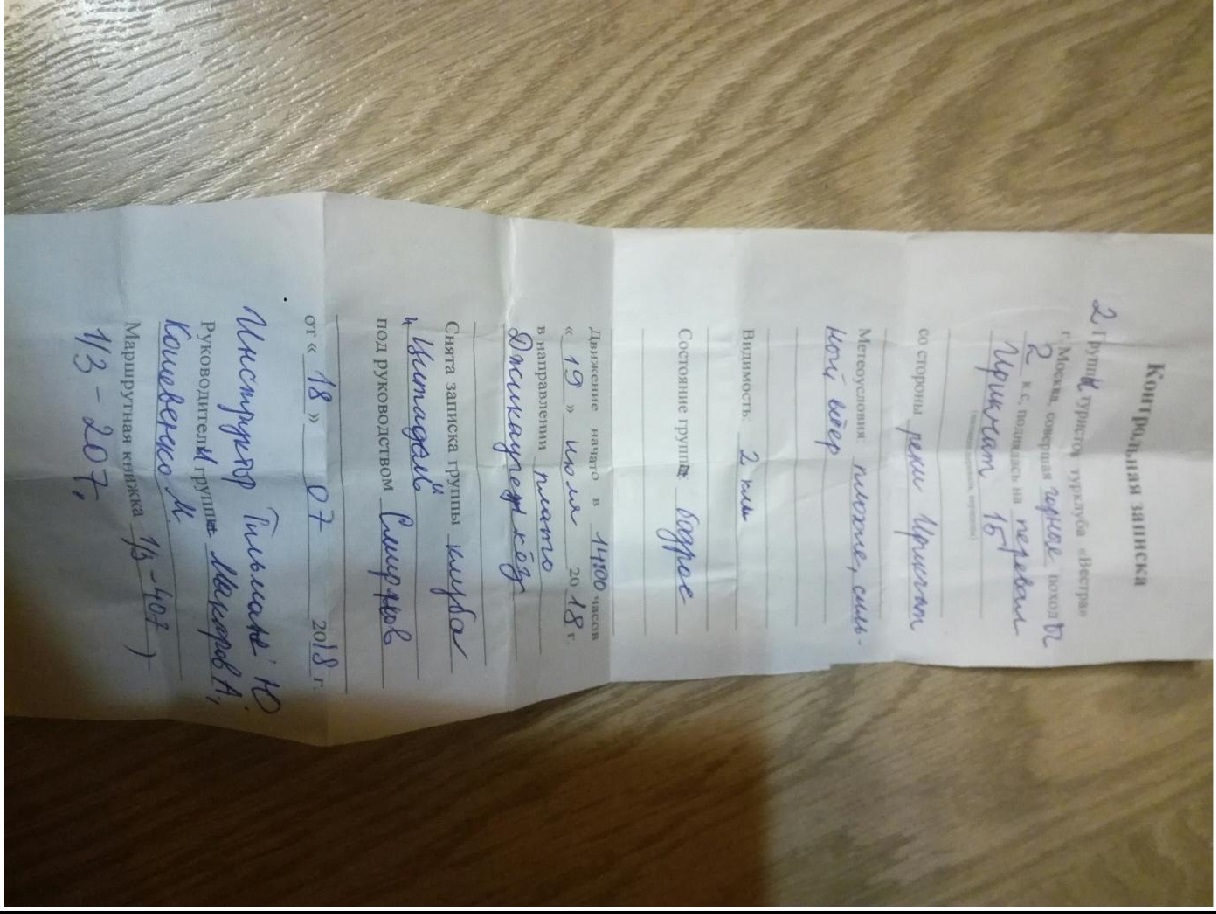 Контрольная записка
2 Группы туристов турклуба «Вестра»
г. Москва, совершая горные поход ы
2 к.с, поднялась на перевал
Ирикчат 1Б
со стороны реки Ирикчат
Метеоусловия: плохие, силь-
ной ветер
Видимость: 2 км
Состояние групп: бодрое
Движение начато в 14:00 часов
« 19 » июля 2018 г.
в направлении плато
Джикаугенкёз
Снята записка группы клуба
"Цитадель"
под руководством
от « 18 » 07 2018 г.
Инструктор Тильман Ю
Руководители групп: А,
Кошевенко М
Маршрутная книжка 1/3-407)
1/3 - 207,